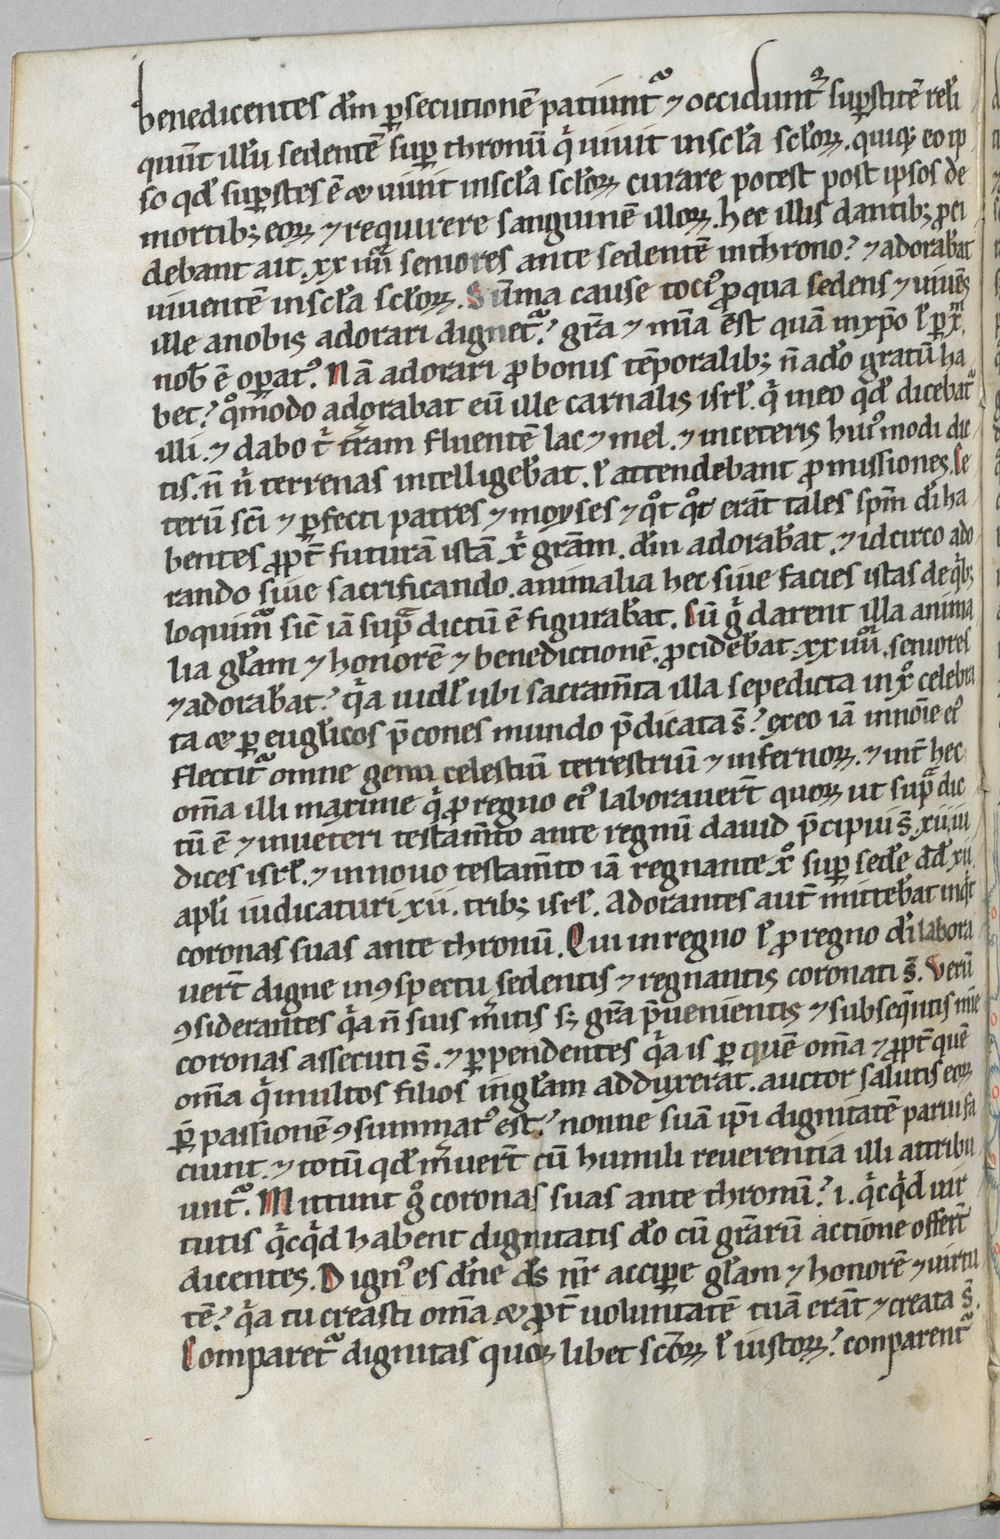 benedicentes dm̄ ꝑsecutionē patiunt᷑ ⁊ occidunt᷑ suꝑstitē reli
quūt illū sedentē suꝑ thronū qͥ uiuit in scl̄a scl̄oꝝ. quiqꝫ eo ip
so qd̄ suꝑstes ē ⁊ uiuit in scl̄a scl̄oꝝ curare potest post ipsos de
mortibꝫ eoꝝ ⁊ requirere sanguinē illoꝝ. hec illis dantibꝫ ꝓci
debant ait. xx iiii seniores ante sedentē in throno? ⁊ adorabāt
uiuentē in scl̄a scl̄oꝝ. Sūma cause toci᷒ ꝓ qua sedens ⁊ uiuēs
ille a nobis adorari dignet᷑? gr̄a ⁊ mīa est quā in xp̄o ł ꝑ xm̄
nob̄ ē oꝑat᷒. Nā adorari ꝓ bonis tēporalibꝫ n̄ adͦo gratū ha
bet? qͦmodo adorabat eū ille carnalis isrl̄. qͥ in eo qd̄ dicebat᷑
illi. ⁊ dabo tͥ t̄ram fluentē lac ⁊ mel. ⁊ in ceteris hui᷒modi dic
tis. n̄ nͥ terrenas intelligebāt. ł attendebant ꝓmissiones. Ce
terū sc̄i ⁊ ꝑfecti patres ⁊ moyses ⁊ qͦt qͦt erāt tales sp̄m dī ha
bentes ꝓpt̄ futurā istā xͥ grām. dm̄ adorabāt. ⁊ idcirco ado
rando siue sacrificando. animalia hec siue facies istas de qͥbꝫ
loquim᷒ sic̄ iā supͣ dictū ē figurabāt. Cū gͥ darent illa anima
lia gl̄am ⁊ honorē ⁊ benedictionē. ꝓcidebāt xx iiiiͦʳ. seniores
⁊ adorabāt? qͥa uidl̄ ubi sacram̄ta illa sepedicta in xͦ celebra
ta ⁊ ꝑ eugl̄icos p̄cones mundo p̄dicata s̄? ex eo iā in noīe ei᷒
flectit᷑ omne genu celestiū terrestriū ⁊ infernoꝝ. ⁊ int̄ hec
om̄a illi maxime qͥ ꝓ regno ei᷒ laborauert̄ quoꝝ ut supͣ dic
tū ē ⁊ in ueteri testam̄to ante regnū dauid p̄cipui s̄. xii. iu
dices isrl̄. ⁊ in nouo testam̄to iā regnante xͦ suꝑ sede dd̄ xii
apl̄i iudicaturi xii. tribꝫ isrl̄. Adorantes aut̄ mittebāt inqͥt
coronas suas ante thronū. Qui in regno ł ꝓ regno dī labora
uert̄ digne in ꝯspectu sedentis ⁊ regnantis coronati s̄. Verū
ꝯsiderantes qͥa n̄ suis m̄itis sꝫ gr̄a p̄uenientis ⁊ subseqn̄tis mīe
coronas assecuti s̄. ⁊ ꝑpendentes qͥa is ꝑ quē om̄a ⁊ ꝓpt̄ quē
om̄a qͥ multos filios in gl̄am adduxerat. auctor salutis eoꝝ
ꝑ passionē ꝯsummat᷒ est? nonne suā ip̄i dignitatē parui fa
ciunt. ⁊ totū qd̄ m̄uert̄ cū humili reuerentia illi attribu
unt᷑. Mittunt gͦ coronas suas ante thronū? .i. qͥcqͥd uir
tutis qͥcqͥd habent dignitatis dͦo cū gr̄arū actione offert̄
dicentes. Dign᷒ es dn̄e ds̄ nr̄ acciꝑe gl̄am ⁊ honorē ⁊ uirtu
tē? qͥa tu creasti om̄a ⁊ ꝓpt̄ uoluntatē tuā erāt ⁊ creata s̄.
Comparet᷑ dignitas quoꝝ libet sc̄oꝝ ł iustoꝝ? conparent᷑